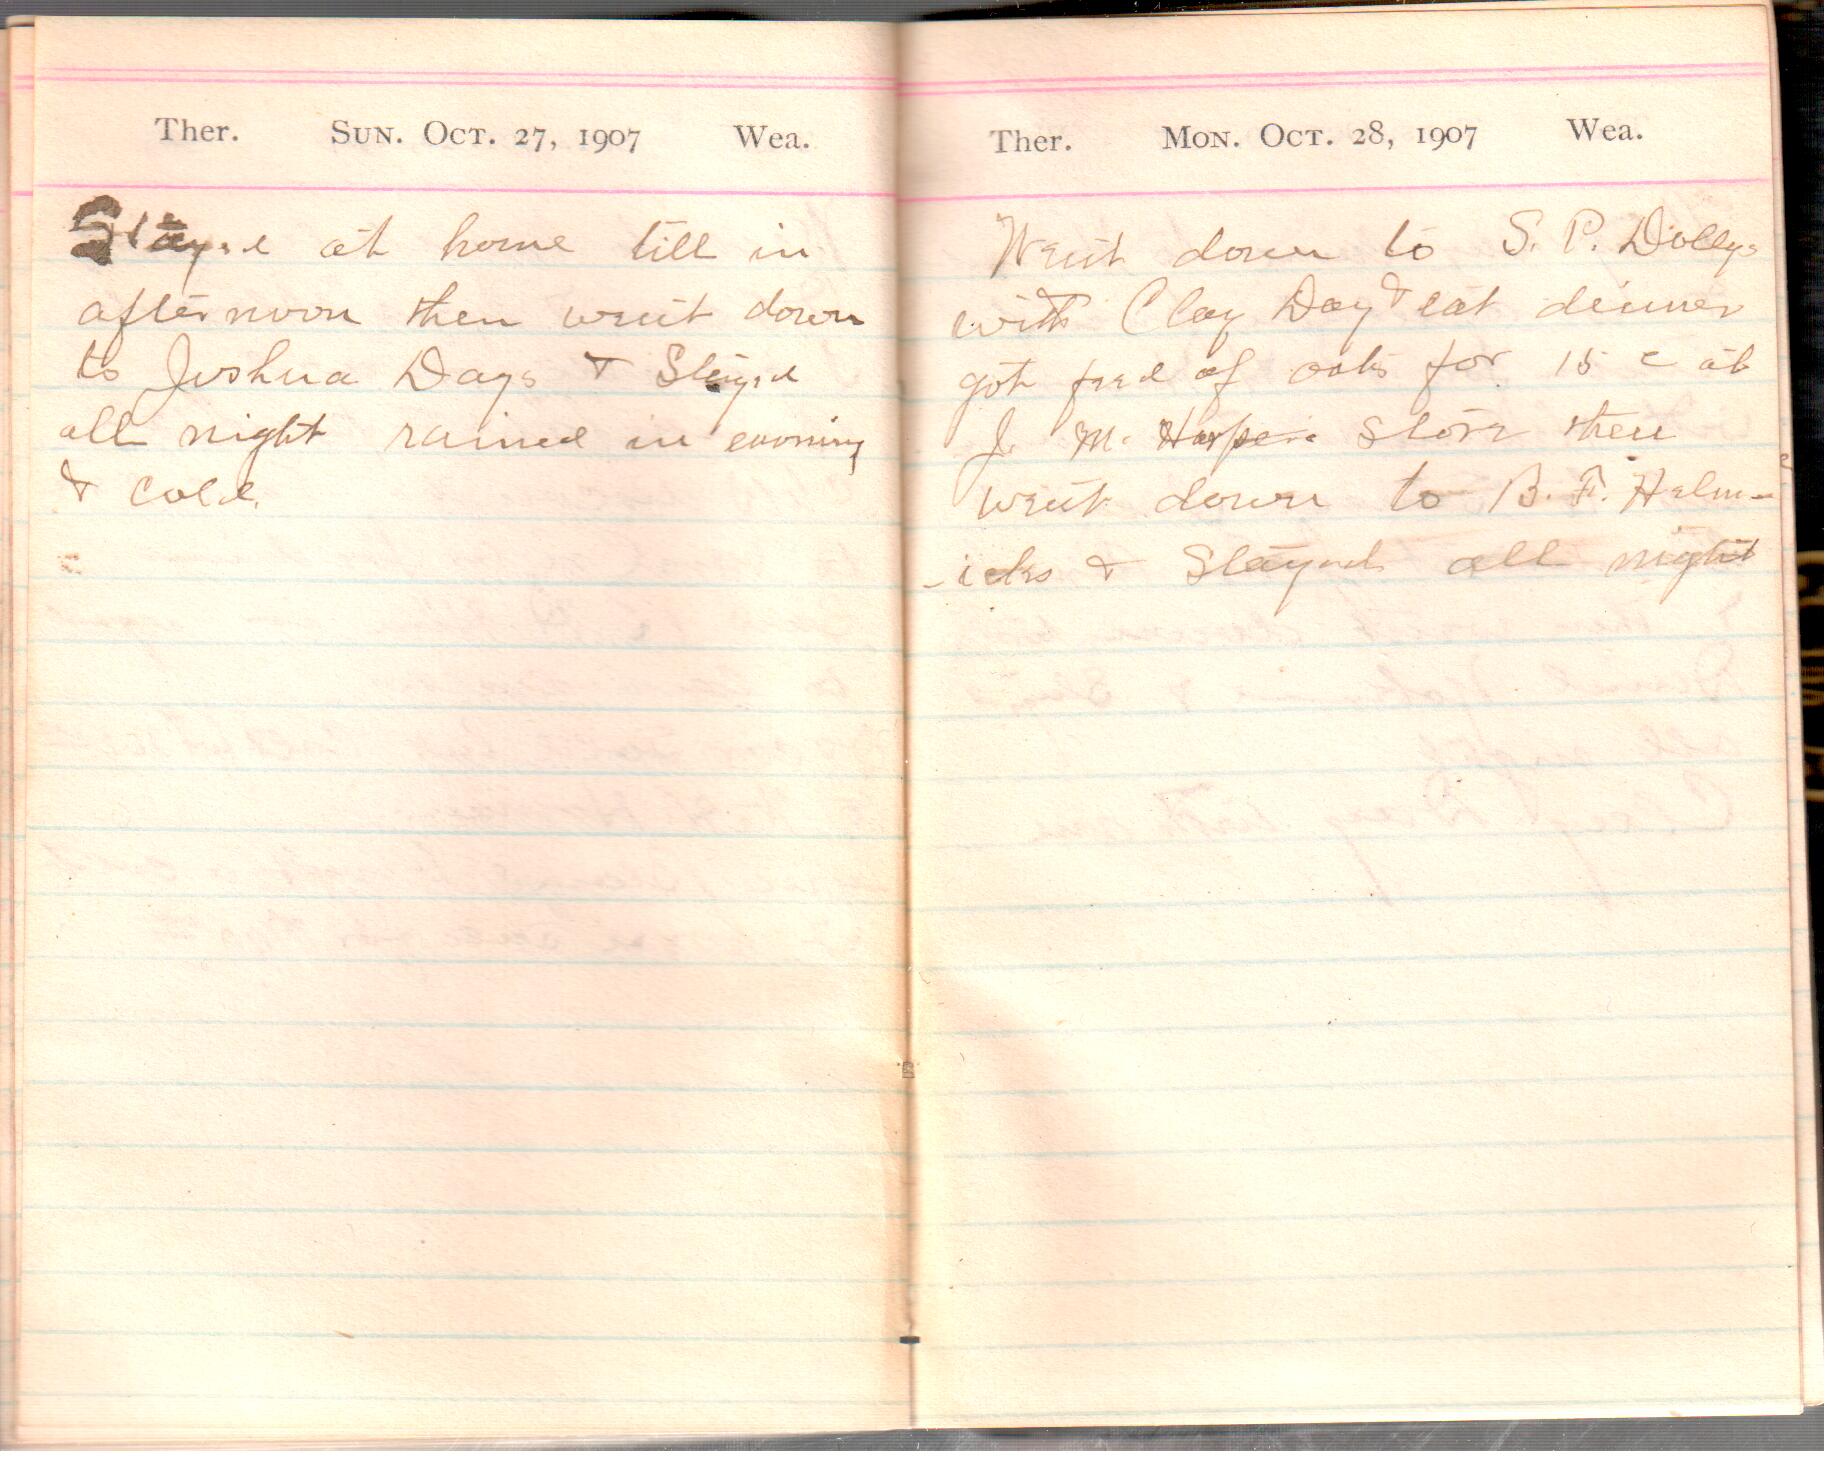 Ther. Sun. Oct. 27, 1907 Wea.
Stayed at home till in
afternoon then went down
to Joshua Days & Stayed
all night rained in evening
& cold.
Ther. Mon. Oct. 28, 1907 Wea.
Went down to S. P. Dollys
with Clay Day & eat dinner
got feed of oats for 15 c at
J. M. Harpers Store then
went down to B. F. Helm-
-icks & Stayed all night